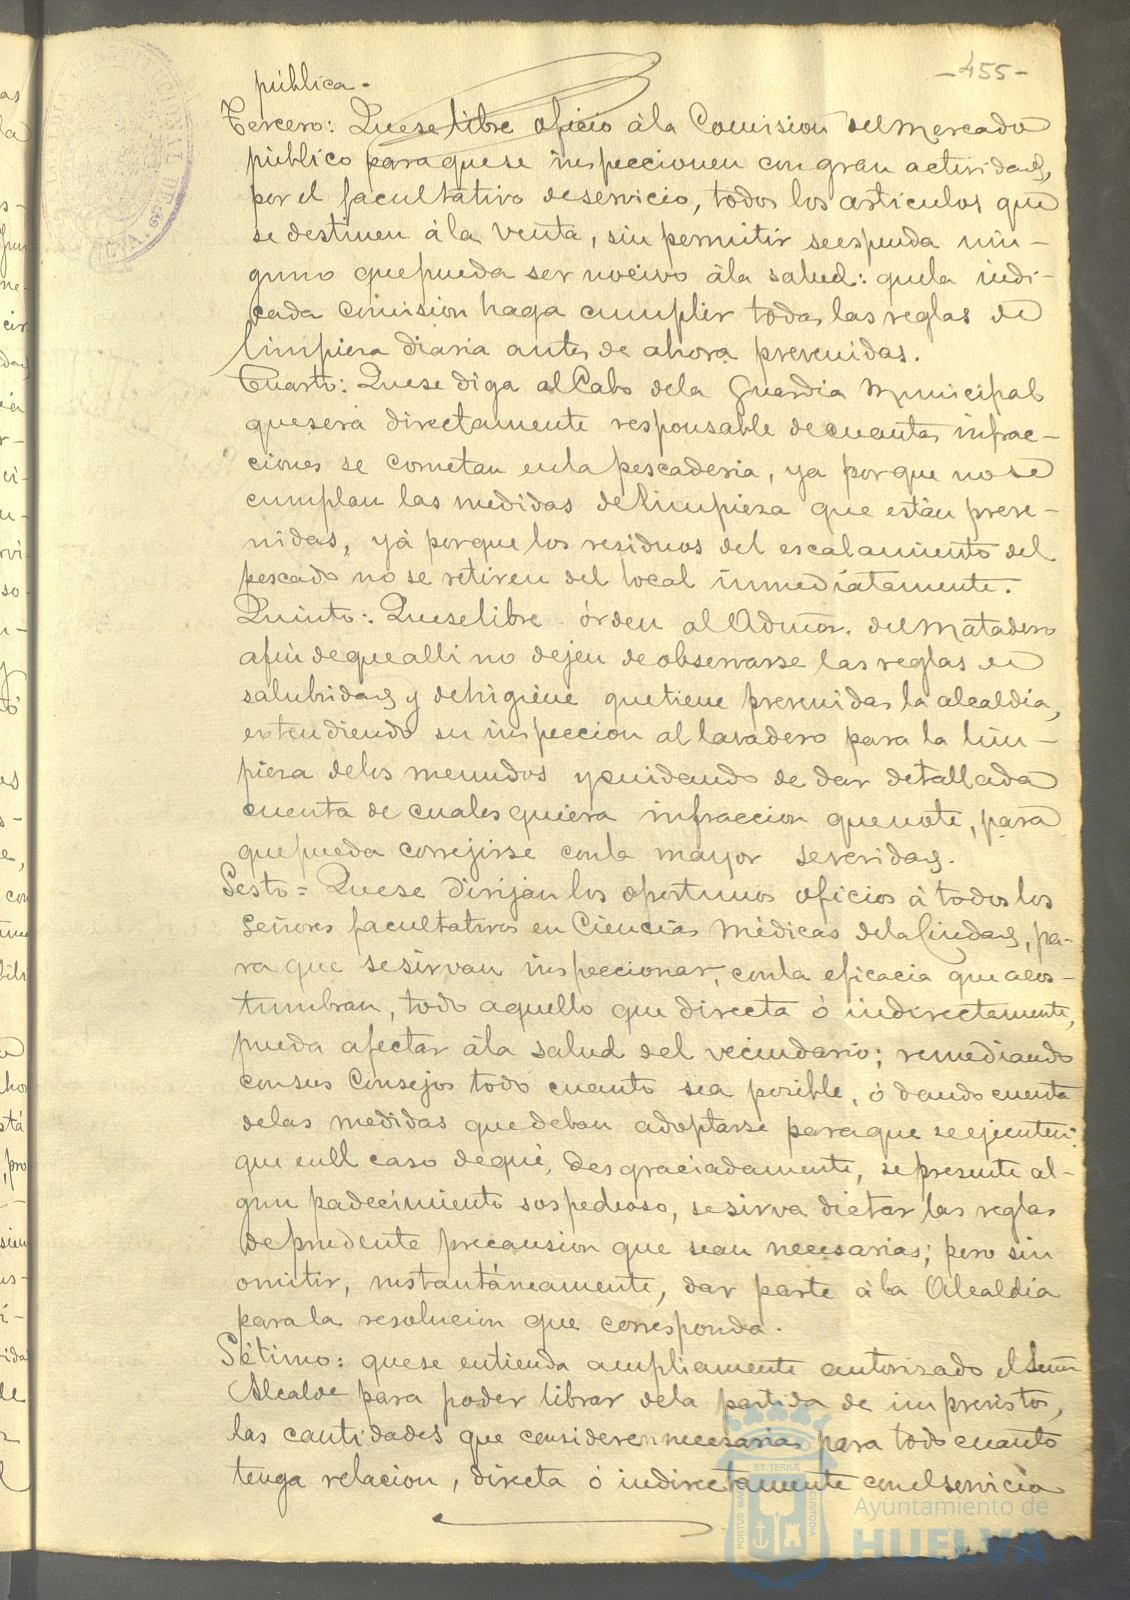 -455-
pública.
Tercero: Que se libre oficio á la Comision del Mercado
público para que se inspeccionen con gran actividad,
por el facultativo de servicio, todos los articulos que
se destinen á la venta, sin permitir se espenda nin-
guno que pueda ser nocivo á la salud: que la indi-
cada comision haga cumplir todas las reglas de
limpieza diaria antes de ahora prevenidas.
Cuarto: Que se diga al Cabo de la Guardia Municipal
que será directamente responsable de cuantas infrac-
ciones se cometan en la pescaderia, ya porque no se
cumplan las medidas de limpieza que están preve-
nidas, yá porque los residuos del escalamiento del
pescado no se retiren del local inmediatamente.
Quinto: Que se libre órden al Admor. del Matadero
afin de que alli no dejen de observarse las reglas de
salubridad y de higiene que tiene prevenidas la alcaldía,
extendiendo su inspeccion al lavadero para la lim-
pieza de los menudos y cuidando de dar detallada
cuenta de cualesquiera infraccion que note, para
que pueda correjirse con la mayor severidad.
Sesto = Que se dirijan los oportunos oficios á todos los
Señores facultativos en Ciencias Médicas de la Ciudad, pa-
ra que se sirvan inspeccionar, con la eficacia que acos-
tumbran, todo aquello que directa ó indirectamente,
pueda afectar á la salud del vecindario; remediando
con sus Consejos todo cuanto sea posible, ó dando cuenta
de las medidas que deban adoptarse para que se ejecuten:
que en el caso de que, desgraciadamente, se presente al-
gun padecimiento sospechoso, se sirva dictar las reglas
de prudente precausion que sean necesarias; pero sin
omitir, instantáneamente, dar parte á la Alcaldía
para la resolucion que corresponda.
Sétimo: que se entienda ampliamente autorizado el Señor
Alcalde para poder librar de la partida de imprevistos,
las cantidades que consideren necesarias para todo cuanto
tenga relacion, directa ó indirectamente con el servicio
Ayuntamiento de
HUELVA